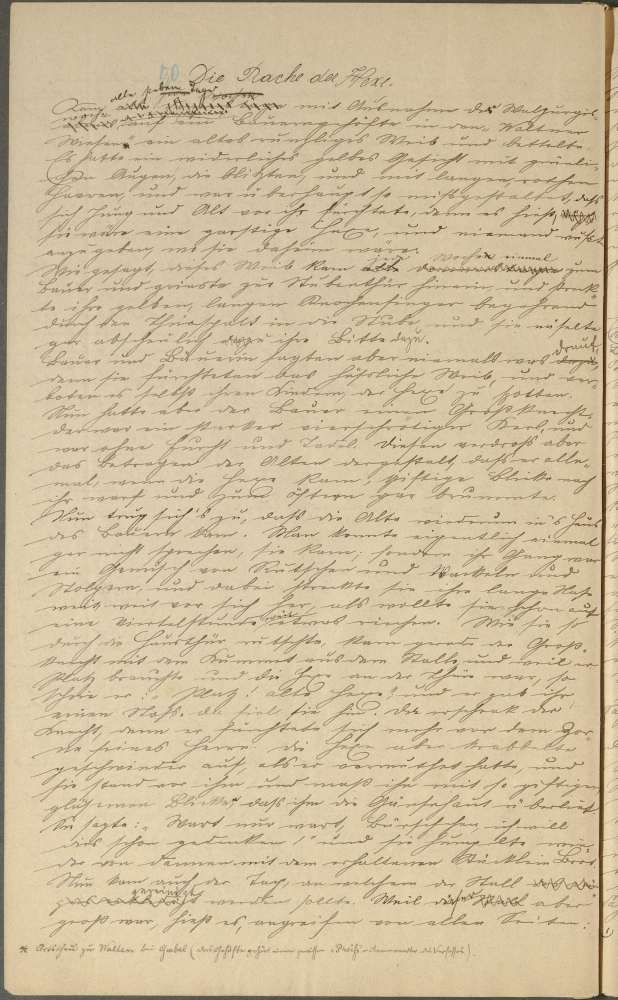 50 Die Rache der Hexe.
alle sieben Tage
Kam mit Ausnahme der Walpurgis-
auf ein Bauerngehöfte in den "Waltner
Wiesen"* ein altes runzliges Weib und bettelte.
Es hatte ein widerliches gelbes Gesicht mit grünli-
chen Augen, die blitzten, und mit langen, rothen
Haaren, und war überhaupt so mißgestaltet, daß
sich Jung und Alt vor ihr fürchtete, denn es hieß,
sie wäre eine garstige Hexe, und niemand wußte
anzugeben, wo sie daheim wäre.
Wie gesagt, dieses Weib kam jede Woche einmal zum
Bauer und grinste zur Stubenthür herein, und streck-
te ihre gelben, langen Knochenfinger bey Hand
durch den Thürspalt in die Stube, und sie näselte
gar abscheulich ihre Bitte dazu.
Bauer und Bäuerin sagten aber niemals was drauf,
denn sie fürchteten das häßliche Weib, und ver-
boten es selbst ihren Kindern, der Hexe zu spotten.
Nun hatte aber der Bauer einen Großknecht,
der war ein starker vierschrötiger Kerl, und
war ohne Furcht und Tadel. Diesen verdroß aber
das Betragen der Alten dergestalt, daß er alle-
mal, wenn die Hexe kam, giftige Blicke nach
ihr warf und zum öftern gar brummte.
Nun trug sich's zu, daß die Alte wiederum in's Haus
des Bauern kam. Man konnte eigentlich einmal
gar nicht sprechen, sie kam; sondern ihr Gang war
ein Gemisch von Rutschen und Wackeln und
Stolpern, und dabei streckte sie ihre lange Nase
weit, weit vor sich her, als wollte sie schon auf
eine Viertelstunde weit etwas riechen. Wie sie so
durch die Hausthür rutschte, kam gerade der Groß-
knecht mit dem Kummet aus dem Stalle, und weil er
Platz brauchte und die Hexe an der Thür war, so
schrie er: "Platz! alte Hexe!" und er gab ihr
einen Stoß, da fiel sie hin. Da erschrak der
Knecht, denn er fürchtete sich mehr vor dem Zor-
ne seines Herrn. Die Hexe aber krabbelte
geschwinder auf, als er vermuthet hatte, und
sie stand vor ihm und maß ihn mit so giftigen
glühenden Blicken, daß ihm die Gänsehaut überlief.
Sie sagte: "Wart nur wart, Bürschchen, ich will
dirs schon gedenken!" und sie humpelte wie-
der von dannen mit dem erhaltenen Stücklein Brod.
Nun kam auch der Tag, an welchem der Stall
gereinigt werden sollte. Weil dieser aber
groß war, hieß es, angreifen von allen Seiten:
* Ortschaft zu Walten bei Gabel